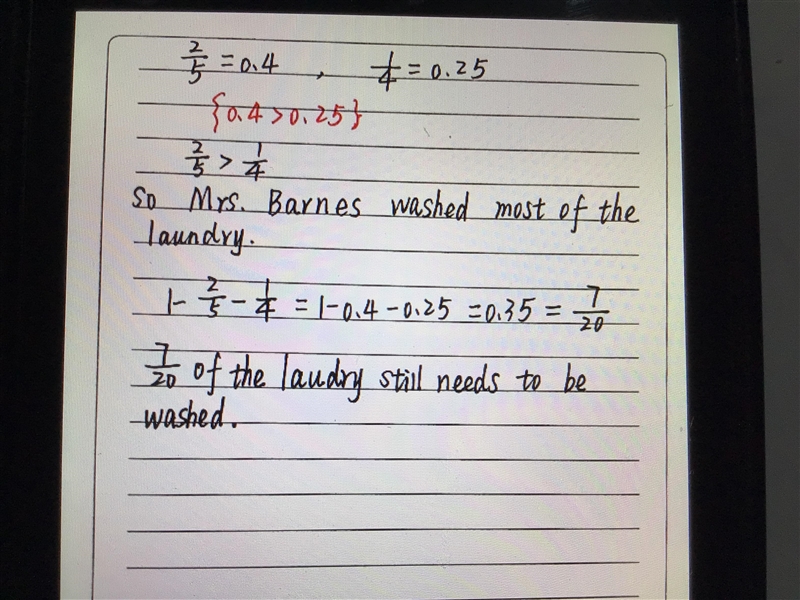 2/5 = 0.4 , 1/4 = 0.25
{0.4 > 0.25}
2/5 > 1/4
So Mrs. Barnes washed most of the
laundry.
1 - 2/5 - 1/4 = 1 - 0.4 - 0.25 = 0.35 = 7/20
7/20 of the laudry still needs to be
washed.